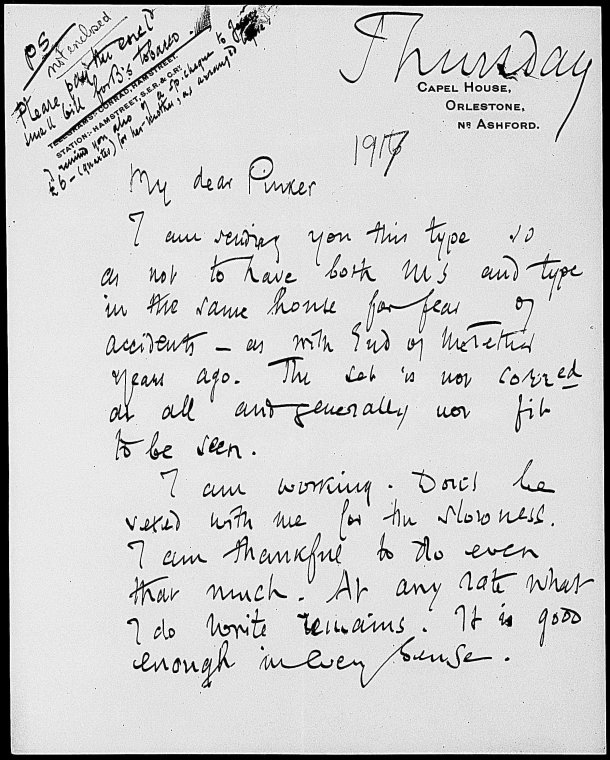 PS
not enclosed
Please pay the encl<sup>d</sup>
small bill for B's tobacco.
TELEGRAMS:-CONRAD, HAMSTREET.
STATION:-HAMSTREET, S.E.R. & C.R.
I remind you also of a sp. cheque to Jessie
£6 – (quarter) for her mother, as arranged
Thursday
CAPEL HOUSE,
ORLESTONE,
NR ASHFORD.
1917
My dear Pinker
I am sending you this type so
as not to have both MS and type
in the same house for fear of
accidents – as with End of the Tether
years ago. The set is not corr<sup>ed</sup>
at all and generally not fit
to be seen.
I am working. Don't be
vexed with me for the slowness.
I am thankful to do even
that much. At any rate what
I do write remains. It is good
enough in every sense.